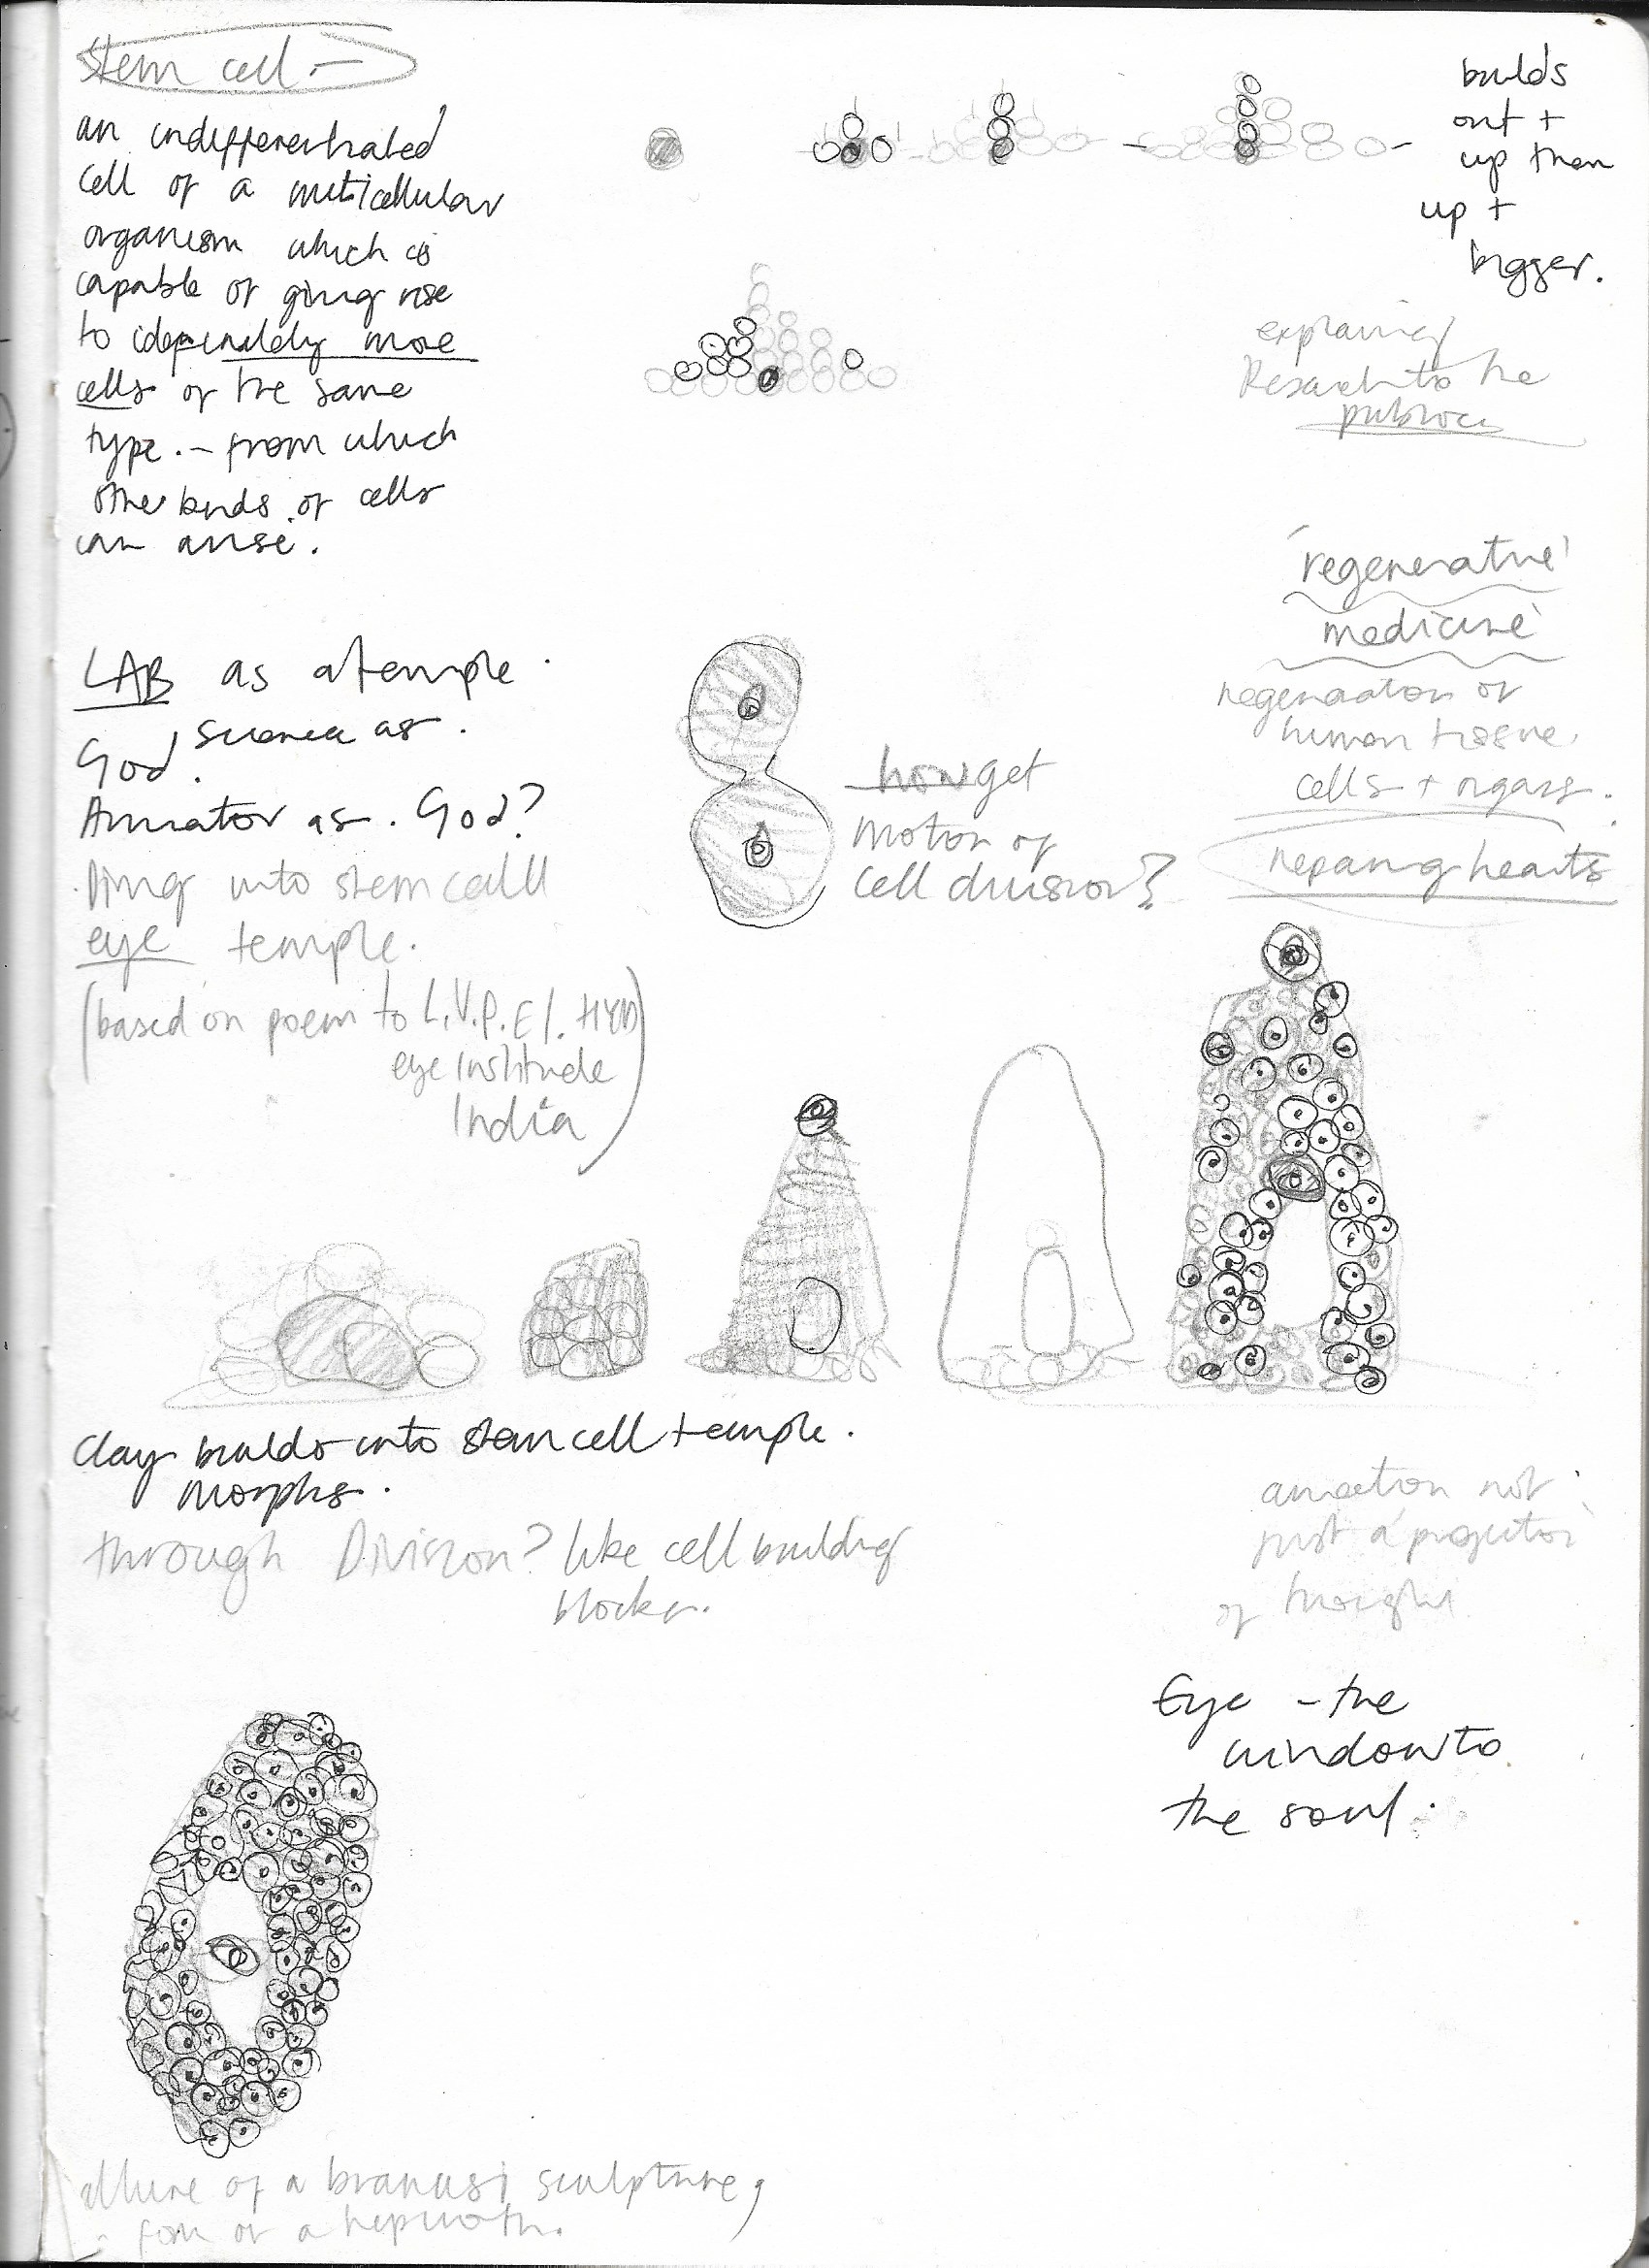 Stem cell -
an indifferentiated
cell of a multicellular
organism which is
capable of giving rise
to
more
cells of the same
type. - from which
other kinds of cells
can arise.
builds
out +
up then
up +
bigger.
explaining
Research to the
public
'regenerative
medicine'
regeneration of
human tissue
cells + organs.
repairing hearts
LAB as a temple.
Science as.
God.
Animator as. God?
into stem cell
eye temple.
(based on poem to L.V.P.E.I. HYD
eye Institude
India)
how get
motion of
cell division?
Clay builds into stem cell temple.
morphs.
through Division? like cell building
blocks.
animation not
just a 'projector'
of thought
Eye - the
window to
the soul.
allure of a brancusi sculpture,
form of a hepworth.